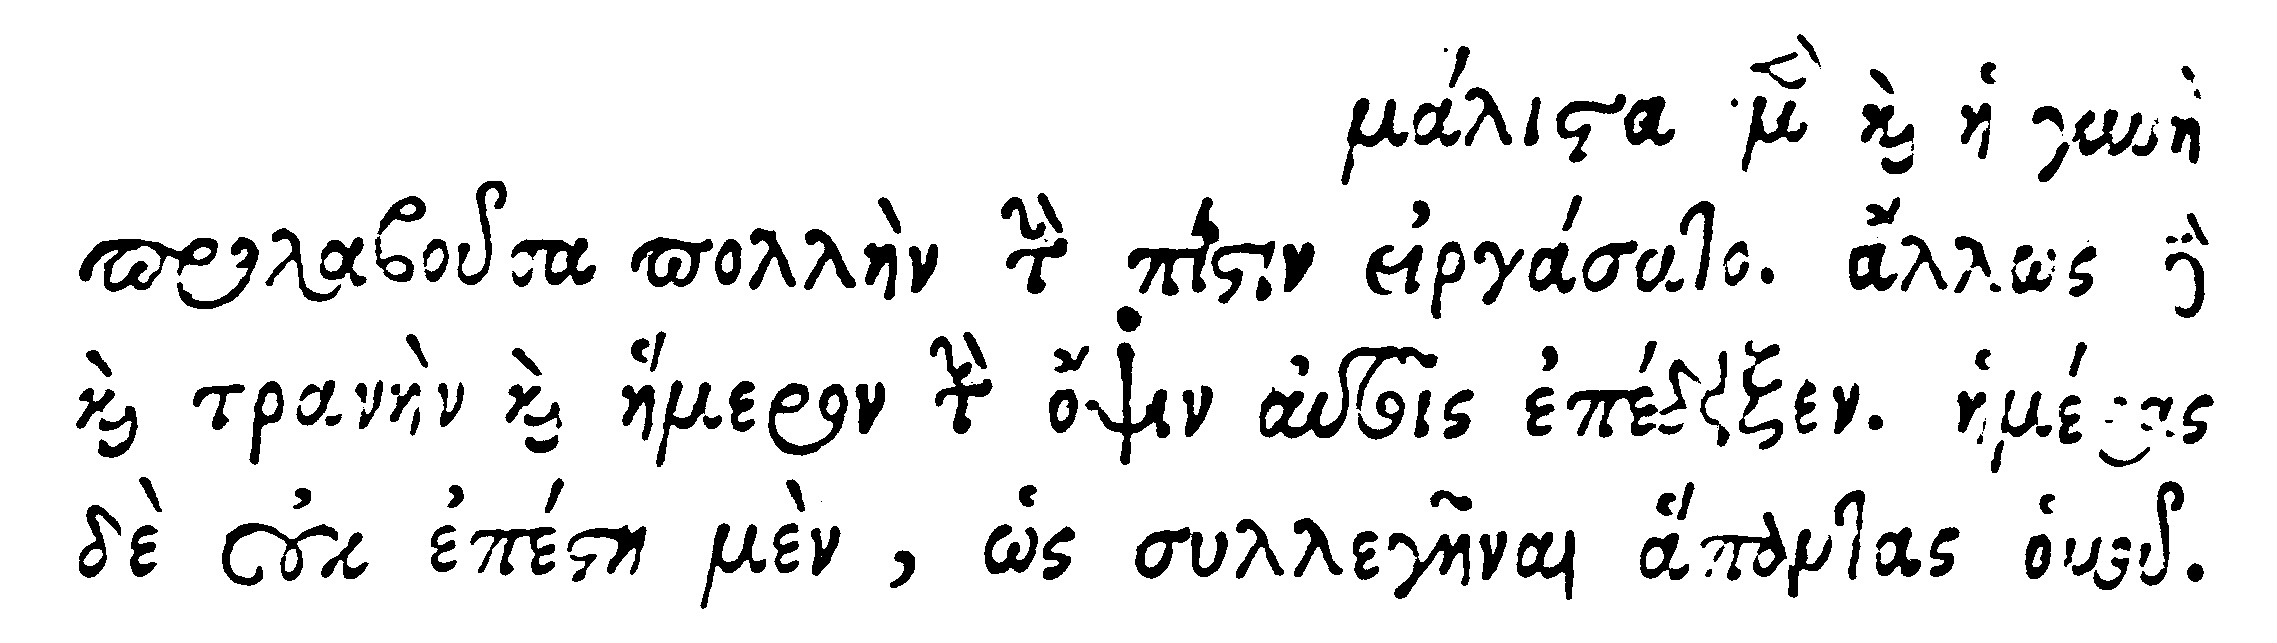 μάλιστα μὲν καὶ ἡ γυνὴ
προλαβοῦσα πολλὴν τὴν πίστιν εἰργάσατο. ἄλλως γὰρ
καὶ τρανὴν καὶ ἥμερον τὴν ὄψιν αὐτοῖς ἐπέδειξεν. ἡμέρας
δὲ οὐκ ἐπέστη μὲν, ὡς συλλεγῆναι ἅπαντας ὁμοῦ.